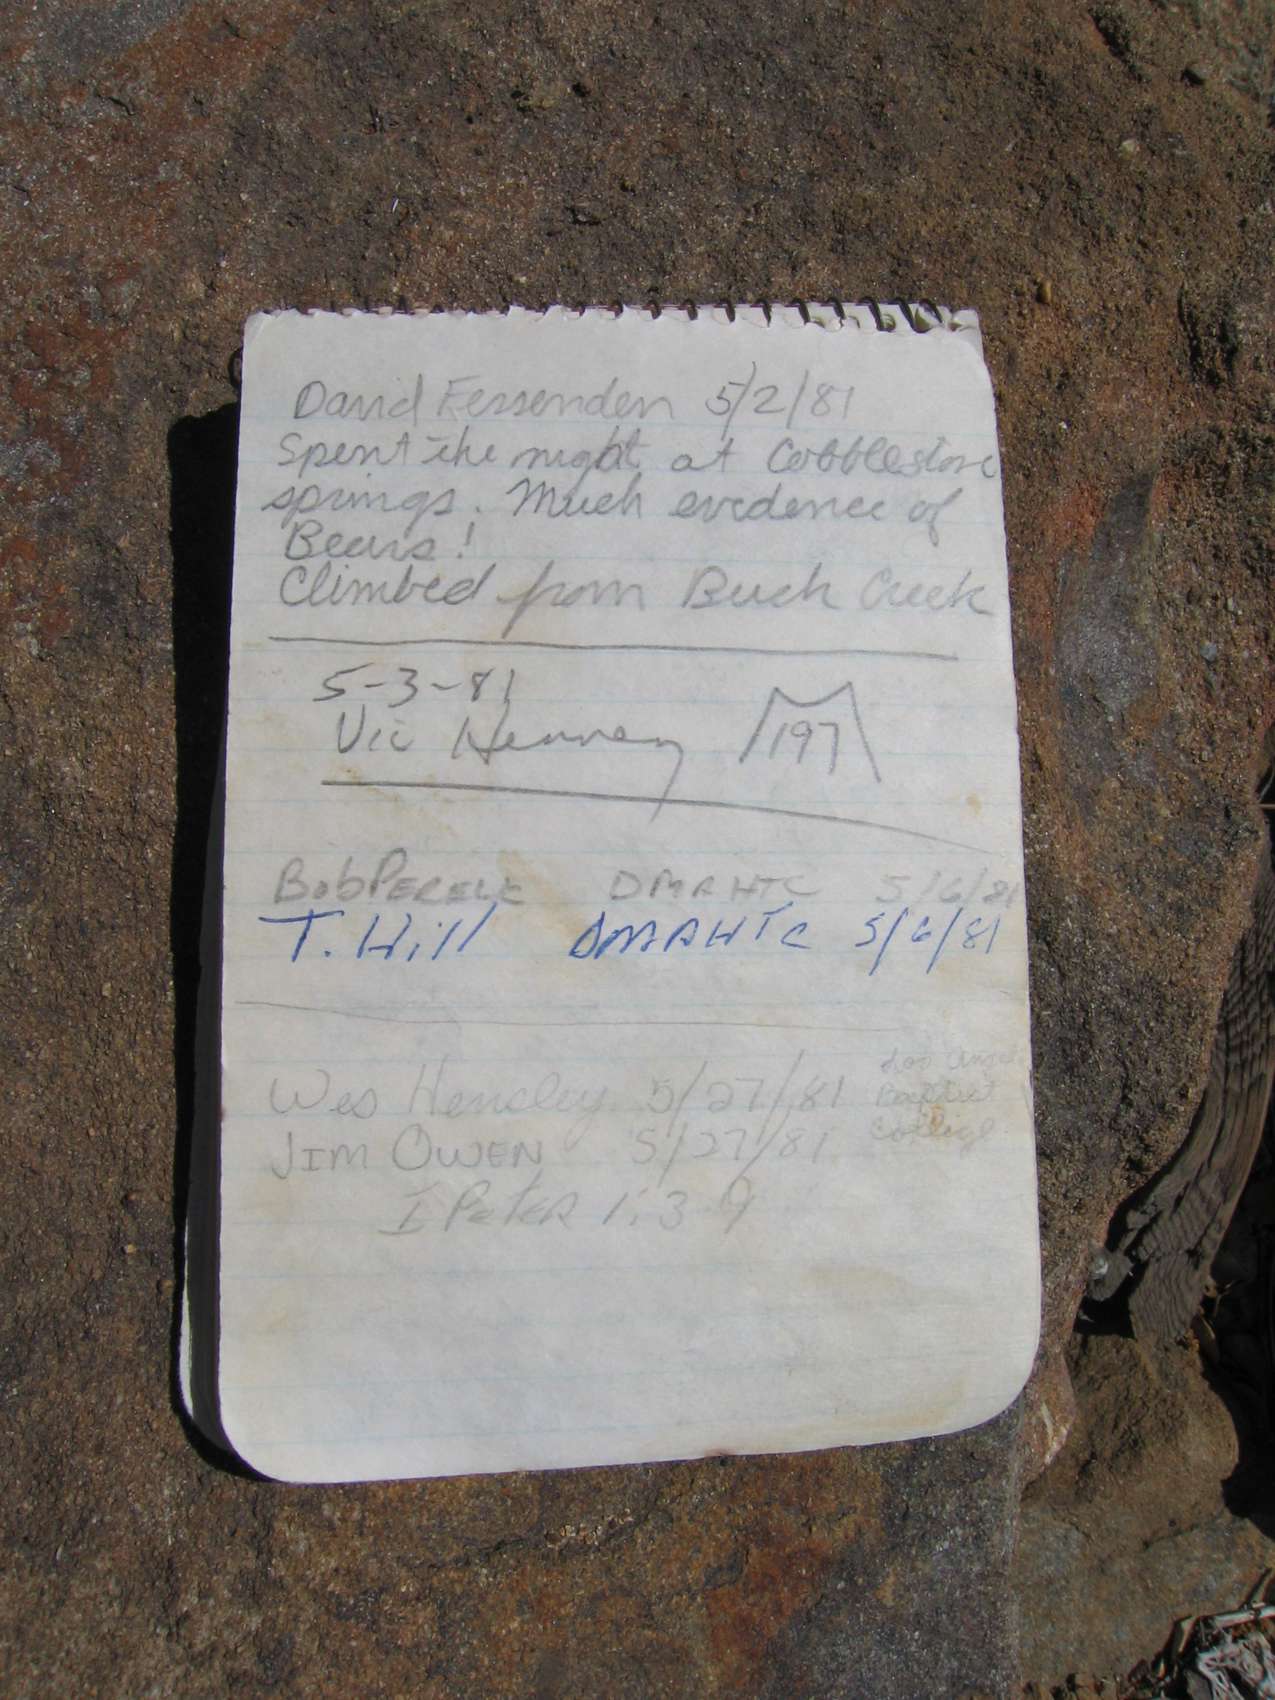 David Fessenden 5/2/81
Spent the night at Cobblestone
springs. Much evidence of
Bears!
Climbed from Buck Creek
5-3-81
Vic Henney 197
Bob DMAHTC 5/6/81
T. Hill DMAHTC 5/6/81
Wes Hensley 5/27/81 Los
Baptist
JIM OWEN 5/27/81 College
I PETER 1:3-9